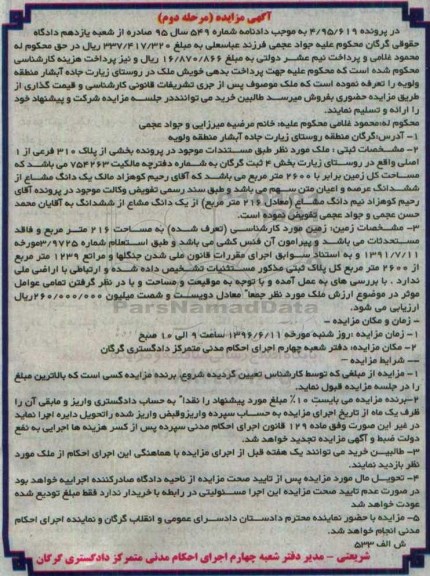 آگهی مزایده (مرحله دوم)
در پرونده ۴/۹۵/۶۱۹ به موجب دادنامه شماره ۵۴۹ سال ۹۵ صادره از شعبه یازدهم دادگاه
حقوقی گرگان محکوم علیه جواد عجمی فرزند عباسعلی به مبلغ ۳۳۷/۴۱۷/۳۲۰ ریال در حق محکوم له
محمود غلامی و پرداخت نیم عشر دولتی به مبلغ ۱۶/۸۷۰/۸۶۶ ریال و نیز پرداخت هزینه کارشناسی
محکوم شده است که محکوم علیه جهت پرداخت بدهی خویش ملک در روستای زیارت جاده آبشار منطقه
ولویه را تعرفه نموده است که ملک موصوف پس از جری تشریفات قانونی کارشناسی و قیمت گذاری از
طریق مزایده حضوری بفروش میرسد طالبین خرید می توانند در جلسه مزایده شرکت و پیشنهاد خود
را ارائه و تسلیم نمایند.
محکوم له: محمود غلامی محکوم علیه: خانم مرضیه میرزایی و جواد عجمی
۱- آدرس: گرگان منطقه روستای زیارت جاده آبشار منطقه ولویه
۲- مشخصات ثبتی : ملک مورد نظر طبق مستندات موجود در پرونده بخشی از پلاک ۳۱۰ فرعی از ۱
اصلی واقع در روستای زیارت بخش ۴ ثبت گرگان به شماره دفترچه مالکیت ۷۵۴۲۶۳ می باشد که
مساحت کل زمین برابر با ۲۶۰۰ متر مربع می باشد که آقای رحیم کوهزاد مالک یک دانگ مشاع از
ششدانگ عرصه و اعیان متن سهم می باشد و طبق سند رسمی تفویض وکالت موجود در پرونده آقای
رحیم کوهزاد نیم دانگ مشاع (معادل ۲۱۶ متر مربع) از یک دانگ مشاع از ششدانگ به آقایان محمد
حسن عجمی و جواد عجمی تفویض نموده است.
۳- مشخصات زمین: زمین مورد کارشناسی (تعرف شده) به مساحت ۲۱۶ متر مربع و فاقد
مستحدثات می باشد و پیرامون آن فنس کشی می باشد و طبق استعلام شماره ۳/۹۷۲۵ مورخه
۱۳۹۱/۷/۱۱ و به استناد سوابق اجرای مقررات قانون ملی شدن جنگلها و مراتع ۱۲۳۹ متر مربع
از ۲۶۰۰ متر مربع کل پلاک ثبتی مذکور مستثنیات تشخیص داده شده و ارتباطی با اراضی ملی
ندارد . با بررسی های به عمل آمده و با توجه به موقعیت و مساحت و با در نظر گرفتن تمامی عوامل
موثر در موضوع ارزش ملک مورد نظر جمعاً معادل دویست و شصت میلیون ۲۶۰/۰۰۰/۰۰۰ ریال
ارزیابی می شود.
- زمان و مکان مزایده -
۱- زمان مزایده : روز شنبه مورخه ۱۳۹۶/۶/۱۱ ساعت ۹ الی ۱۰ صبح
۲- مکان مزایده: دفتر شعبه چهارم اجرای احکام مدنی متمرکز دادگستری گرگان
— شرایط مزایده —
۱- مزایده از مبلغی که توسط کارشناس تعیین گردیده شروع، برنده مزایده کسی است که بالاترین مبلغ
را در جلسه مزایده قبول نماید.
۲- برنده مزایده می بایست ۱۰٪ مبلغ مورد پیشنهاد را نقداً به حساب دادگستری واریز و مابقی آن را
ظرف یک ماه از تاریخ اجرای مزایده به حساب سپرده واریز و قبض واریز شده را تحویل دایره اجرا نماید
در غیر این صورت وفق ماده ۱۲۹ قانون اجرای احکام مدنی سپرده پس از کسر هزینه ها اجرایی به نفع
دولت ضبط و آگهی مزایده تجدید خواهد شد.
۳- طالبین خرید می توانند یک هفته قبل از اجرای مزایده با هماهنگی این اجرای احکام از ملک مورد
نظر بازدید نمایند.
۴- تحویل مال مورد مزایده پس از تایید صحت مزایده از ناحیه دادگاه صادرکننده اجراییه خواهد بود
در صورت عدم تایید صحت مزایده این اجرا مسئولیتی در رابطه با خریدار ندارد فقط مبلغ تودیع شده
عودت خواهد شد
۵- مزایده با حضور نماینده محترم دادستان دادسرای عمومی و انقلاب گرگان و نماینده اجرای احکام
مدنی انجام خواهد شد.
ش الف ۵۳۳
شریعتی - مدیر دفتر شعبه چهارم اجرای احکام مدنی متمرکز دادگستری گرگان
ParsNamadData